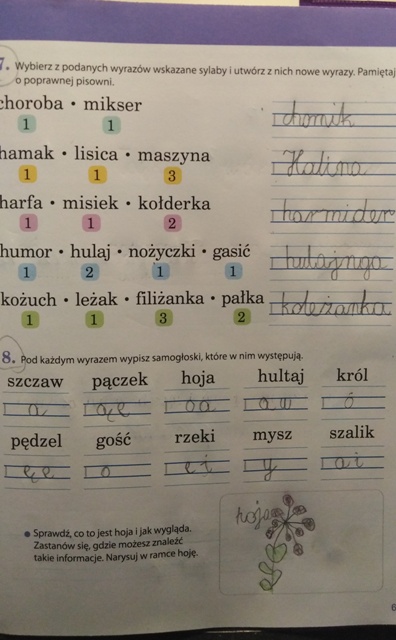 7. Wybierz z podanych wyrazów wskazane sylaby i utwórz z nich nowe wyrazy. Pamiętaj
o poprawnej pisowni.
choroba • mikser chomik
1 1
hamak • lisica • maszyna Halina
1 1 3
harfa • misiek • kołderka harmider
1 1 2
humor • hulaj • nożyczki • gasić hulajnoga
1 2 1 1
kożuch • leżak • filiżanka • pałka koleżanka
1 1 3 2
8. Pod każdym wyrazem wypisz samogłoski, które w nim występują.
szczaw pączek hoja hultaj król
a ąę oa ó
pędzel gość rzeki mysz szalik
ęe o ei y ai
• Sprawdź, co to jest hoja i jak wygląda.
Zastanów się, gdzie możesz znaleźć
takie informacje. Narysuj w ramce hoję.
hoja
6